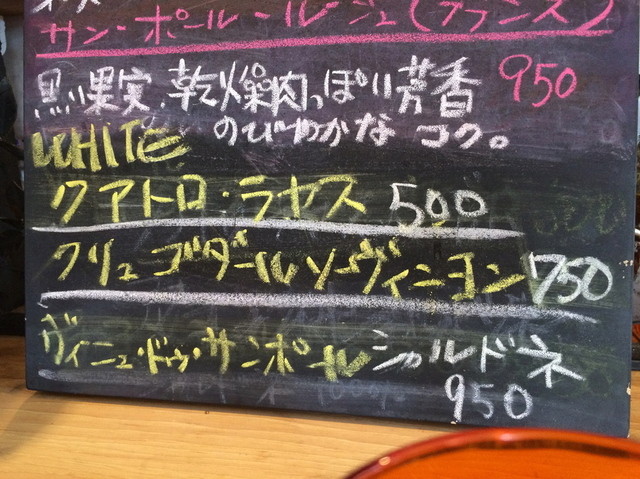 サン・ポール・ルージュ(フランス)
黒い果実、乾燥肉っぽい芳香 950
のびやかなコク。
WHITE
クアトロ・ラヤス 500
クリュ ゴダール ソーヴィニヨン 750
ヴィニュ・ドゥ・サンポール シャルドネ
950